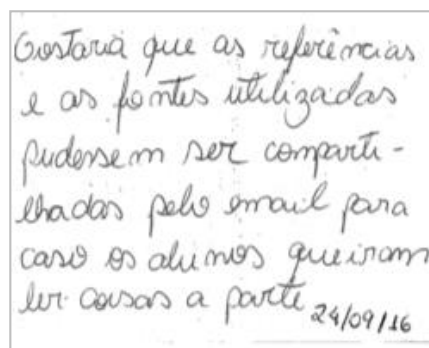 Gostaria que as referências
e as fontes utilizadas
pudessem ser comparti-
lhadas pelo email para
caso os alunos queiram
ler coisas a parte 24/09/16